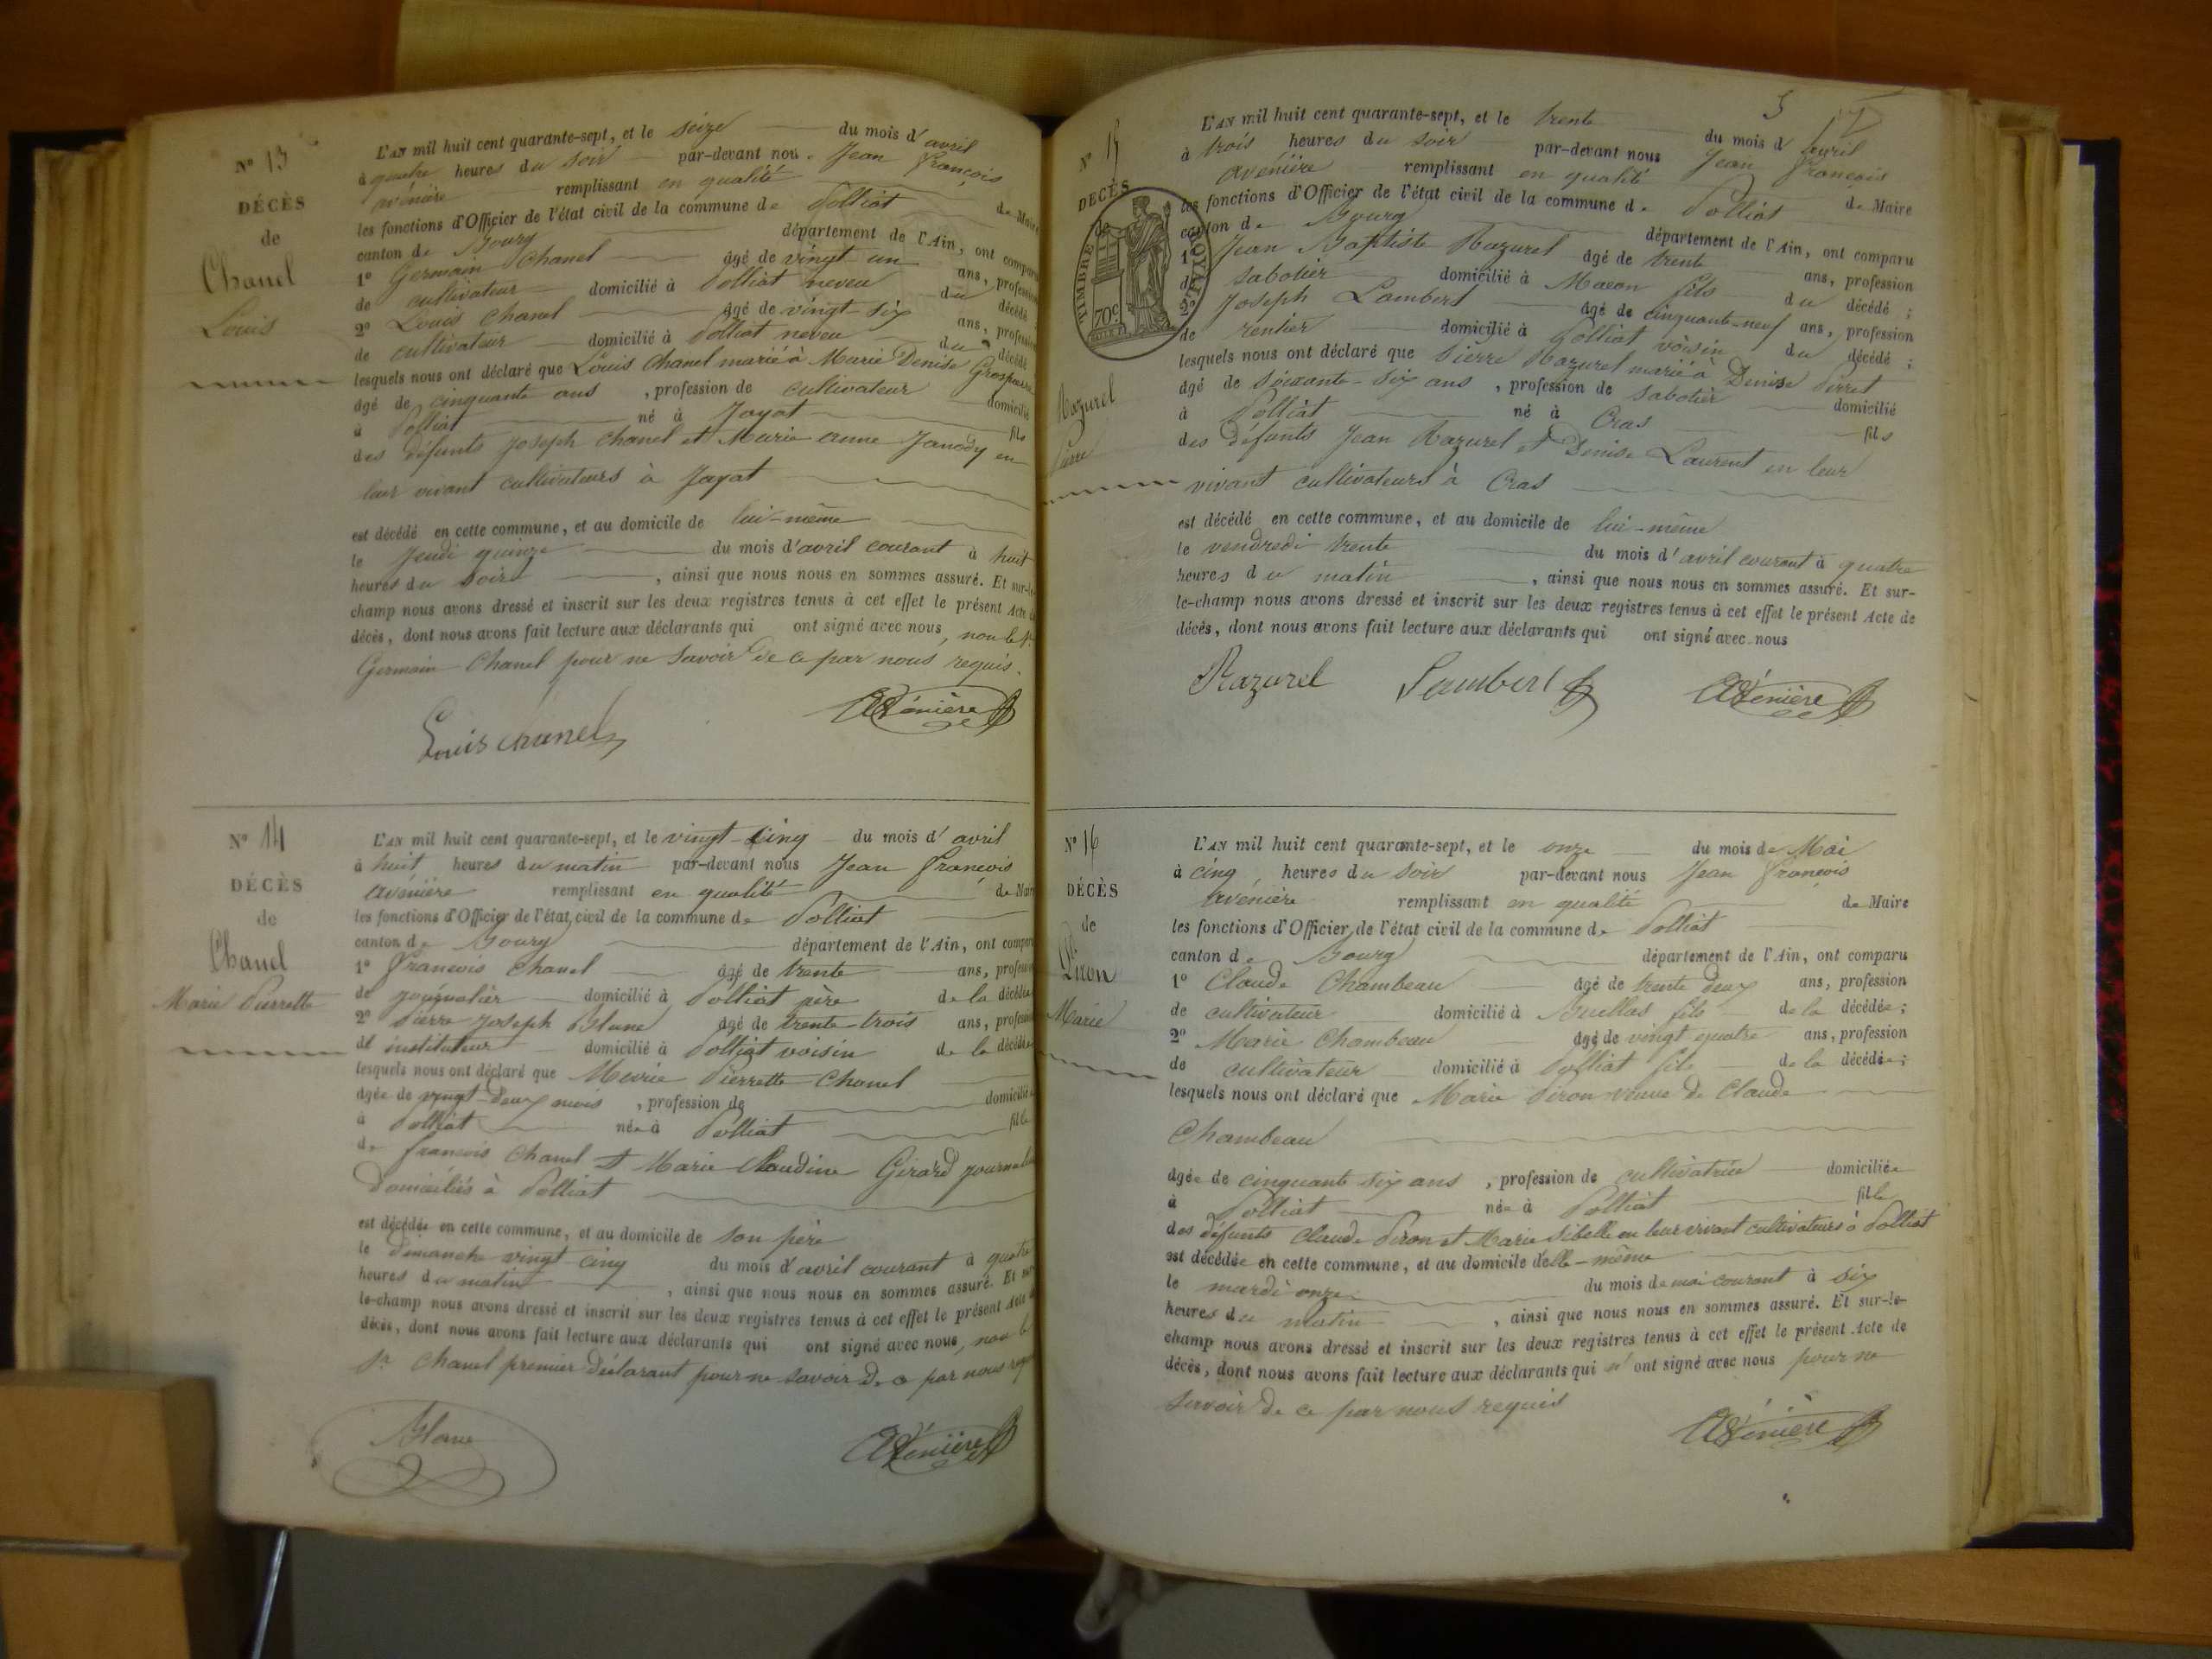 N° 13
DÉCÈS
de
Chanel
Louis
L'AN mil huit cent quarante-sept, et le seize du mois d'avril
à quatre heures du soir par-devant nous Jean François
avénière remplissant en qualité de Maire
les fonctions d'Officier de l'état civil de la commune de Polliat
canton de Bourg département de l'Ain, ont comparu
1° Germain Chanel âgé de vingt un ans, profession
de cultivateur domicilié à Polliat neveu du décédé
2° Louis Chanel âgé de vingt-six ans, profession
de cultivateur domicilié à Polliat neveu du décédé
lesquels nous ont déclaré que Louis Chanel marié à Marie Denise
âgé de cinquante ans , profession de cultivateur domicilié
à Polliat né à Jayat fils
des défunts Joseph Chanel et Marie anne Janody en
leur vivant cultivateurs à Jayat
est décédé en cette commune, et au domicile de lui-même
le Jeudi quinze du mois d'avril courant à huit
heures du soir , ainsi que nous nous en sommes assuré. Et sur-le-
champ nous avons dressé et inscrit sur les deux registres tenus à cet effet le présent Acte de
décès, dont nous avons fait lecture aux déclarants qui ont signé avec nous, non le Sr
Germain Chanel pour ne savoir de ce par nous requis.
Louis chanel
Avénière
N° 14
DÉCÈS
de
Chanel
Marie Pierrette
L'AN mil huit cent quarante-sept, et le vingt-cinq du mois d'avril
à huit heures du matin par-devant nous Jean François
avénière remplissant en qualité de Maire
les fonctions d'Officier de l'état civil de la commune de Polliat
canton de Bourg département de l'Ain, ont comparu
1° François Chanel âgé de trente ans, profession
de journalier domicilié à Polliat père de la décédée
2° Pierre Joseph Blanc âgé de trente-trois ans, profession
de instituteur domicilié à Polliat voisin de la décédée
lesquels nous ont déclaré que Marie Pierrette Chanel
âgée de vingt-deux mois , profession de domiciliée
à Polliat née à Polliat fille
de françois Chanel et Marie Claudine Girard journaliers
domiciliés à Polliat
est décédée en cette commune, et au domicile de son père
le dimanche vingt cinq du mois d'avril courant à quatre
heures du matin , ainsi que nous nous en sommes assuré. Et sur-
le-champ nous avons dressé et inscrit sur les deux registres tenus à cet effet le présent Acte de
décès, dont nous avons fait lecture aux déclarants qui ont signé avec nous, non le
Sr Chanel premier déclarant pour ne savoir de ce par nous requis
Blanc
Avénière
5
N° 15
DÉCÈS
de
TIMBRE ROYAL
70c
Razurel
Pierre
L'AN mil huit cent quarante-sept, et le trente du mois d'avril
à trois heures du soir par-devant nous Jean François
avénière remplissant en qualité de Maire
les fonctions d'Officier de l'état civil de la commune de Polliat
canton de Bourg département de l'Ain, ont comparu
1° Jean Baptiste Razurel âgé de trente ans, profession
de sabotier domicilié à Macon fils du décédé ;
2° Joseph Lambert âgé de cinquante-neuf ans, profession
de rentier domicilié à Polliat voisin du décédé ;
lesquels nous ont déclaré que Pierre Razurel marié à Denise Perret
âgé de soixante-six ans , profession de sabotier domicilié
à Polliat né à Cras fils
des défunts Jean Razurel et Denise Laurent en leur
vivant cultivateurs à Cras
est décédé en cette commune, et au domicile de lui-même
le vendredi trente du mois d'avril courant à quatre
heures du matin , ainsi que nous nous en sommes assuré. Et sur-
le-champ nous avons dressé et inscrit sur les deux registres tenus à cet effet le présent Acte de
décès, dont nous avons fait lecture aux déclarants qui ont signé avec nous
Razurel Lambert Avénière
N° 16
DÉCÈS
de
Piron
Marie
L'AN mil huit cent quarante-sept, et le onze du mois de Mai
à cinq heures du soir par-devant nous Jean François
avénière remplissant en qualité de Maire
les fonctions d'Officier de l'état civil de la commune de Polliat
canton de Bourg département de l'Ain, ont comparu
1° Claude Chambeau âgé de trente deux ans, profession
de cultivateur domicilié à Buellas fils de la décédée ;
2° Marie Chambeau âgé de vingt quatre ans, profession
de cultivateur domicilié à Polliat fils de la décédée ;
lesquels nous ont déclaré que Marie Piron veuve de Claude
Chambeau
âgée de cinquante six ans , profession de cultivatrice domiciliée
à Polliat née à Polliat fille
des défunts Claude Piron et Marie Sibelle en leur vivant cultivateurs à Polliat
est décédée en cette commune, et au domicile d'elle-même
le mardi onze du mois de mai courant à six
heures du matin , ainsi que nous nous en sommes assuré. Et sur-le-
champ nous avons dressé et inscrit sur les deux registres tenus à cet effet le présent Acte de
décès, dont nous avons fait lecture aux déclarants qui n'ont signé avec nous pour ne
savoir de ce par nous requis
Avénière